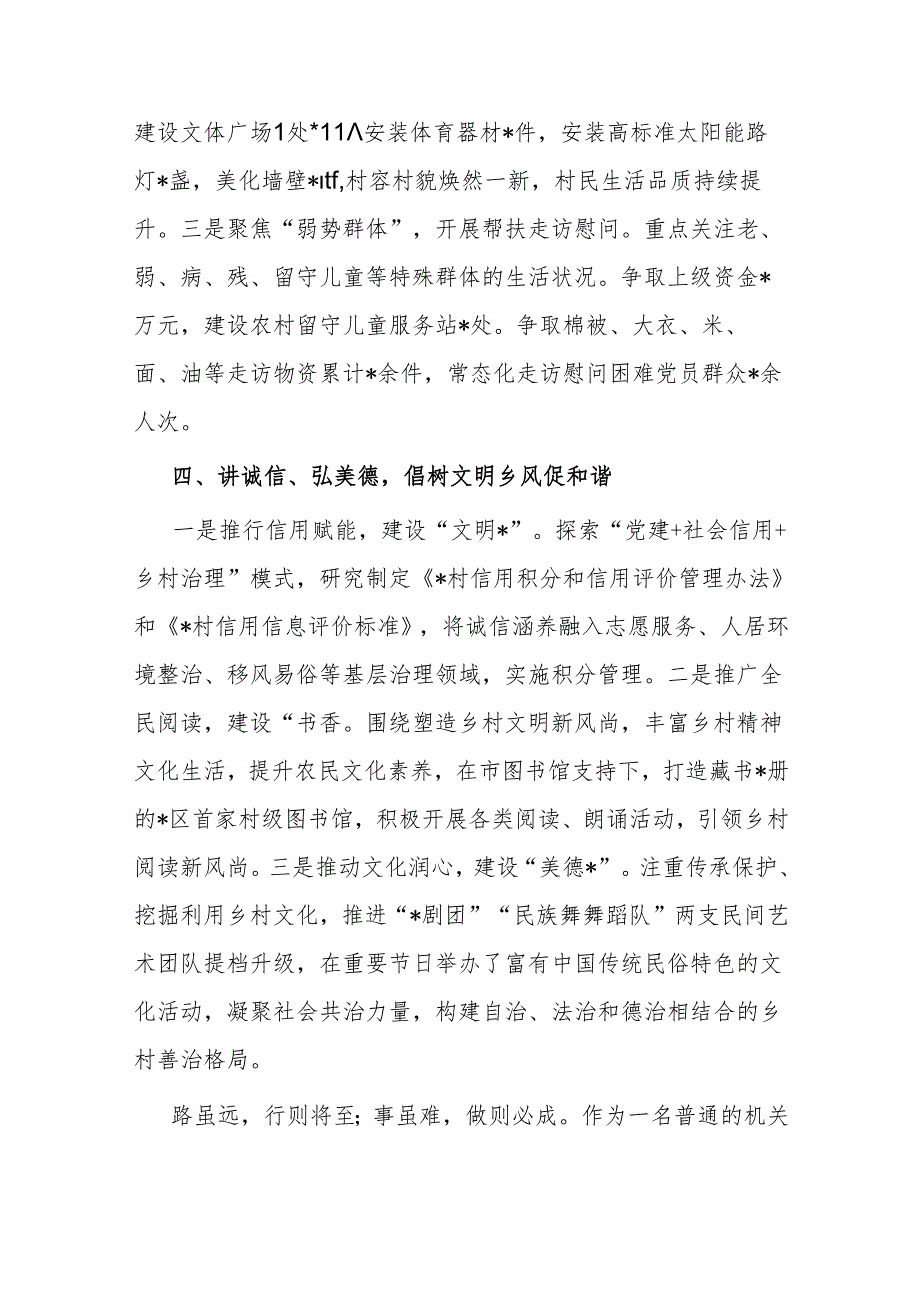 建设文体广场1处*11Λ安装体育器材*件，安装高标准太阳能路
灯*盏，美化墙壁*ιtf,村容村貌焕然一新，村民生活品质持续提
升。三是聚焦“弱势群体”，开展帮扶走访慰问。重点关注老、
弱、病、残、留守儿童等特殊群体的生活状况。争取上级资金*
万元，建设农村留守儿童服务站*处。争取棉被、大衣、米、
面、油等走访物资累计*余件，常态化走访慰问困难党员群众*余
人次。
四、讲诚信、弘美德，倡树文明乡风促和谐
一是推行信用赋能，建设“文明*”。探索“党建+社会信用+
乡村治理”模式，研究制定《*村信用积分和信用评价管理办法》
和《*村信用信息评价标准》，将诚信涵养融入志愿服务、人居环
境整治、移风易俗等基层治理领域，实施积分管理。二是推广全
民阅读，建设“书香。围绕塑造乡村文明新风尚，丰富乡村精神
文化生活，提升农民文化素养，在市图书馆支持下，打造藏书*册
的*区首家村级图书馆，积极开展各类阅读、朗诵活动，引领乡村
阅读新风尚。三是推动文化润心，建设“美德*”。注重传承保护、
挖掘利用乡村文化，推进“*剧团”“民族舞舞蹈队”两支民间艺
术团队提档升级，在重要节日举办了富有中国传统民俗特色的文
化活动，凝聚社会共治力量，构建自治、法治和德治相结合的乡
村善治格局。
路虽远，行则将至；事虽难，做则必成。作为一名普通的机关